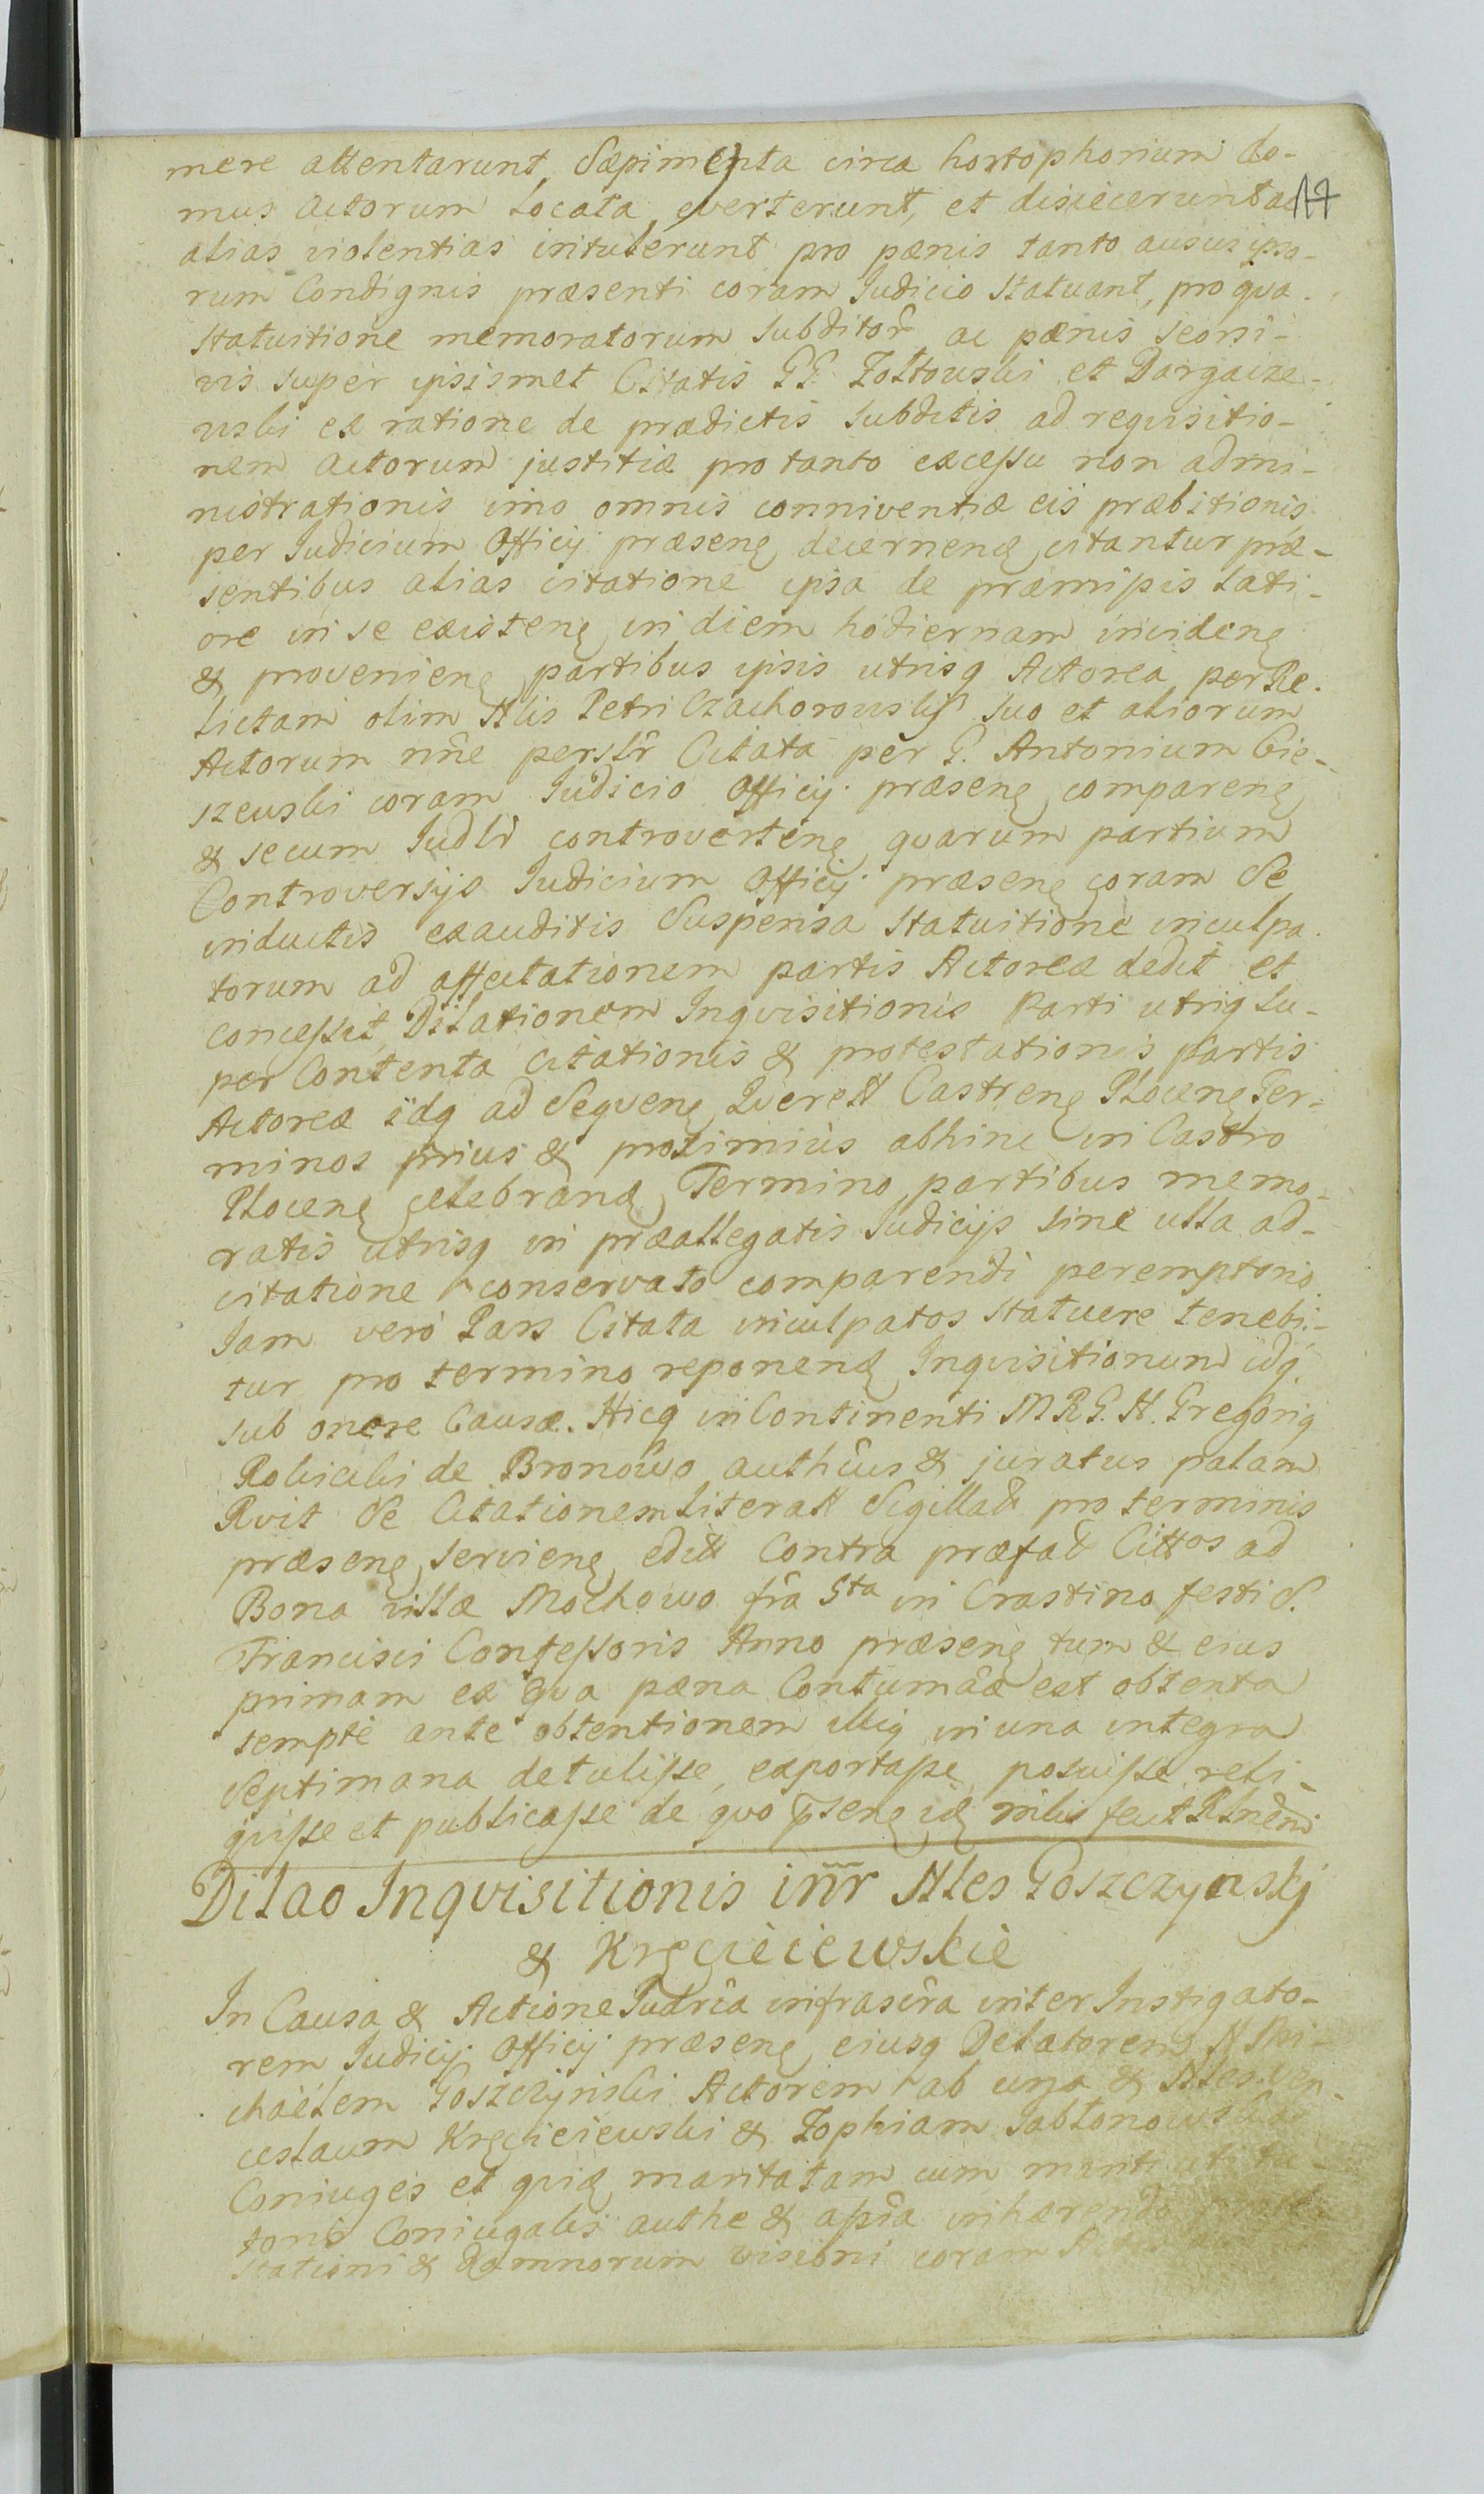 mere attentarunt, Sæpimenta circa hortophorium do-
mus Actorum Locata, everterunt, et disiecerunt ac
17
alias violentias intulerunt pro pœnis tanto ausui ipso-
rum Condignis præsenti coram Iudicio Statuant, pro qua
Statuitione memoratorum Subditor̃ ac pœnis seorsi-
vis super ipsismet Citatis GG Zołtowski et Dargaize-
wski ex ratione de prædictis Subditis ad requisitio-
nem Actorum justitiæ pro tanto excessu non admi-
nistrationis imo omnis conniventiæ eis præbitionis
per Iudicium Officij præsenȩ decernend̨ citantur præ-
sentibus alias citatione ipsa de præmissis lati-
ore in se existenȩ in diem hodiernam incidenȩ
& provenienȩ partibus ipsis utrisq Actorea per Re-
lictam olim Nlis Petri Czachorowskij suo et aliorum
Actorum nñe persłr̃ Citata per G. Antonium Cie-
szewski coram Iudicio Officij præsenȩ comparenȩ
& secum Iudlr̃ controvertenȩ quarum partium
Controversijs Iudicium Officij præsenȩ coram Se
inductis exauditis Suspensa Statuitione inculpa-
torum ad affectationem partis Actoreæ dedit et
concessit Dilationem Inquisitionis Parti utriq su-
per Contenta citationis & protestationis partis
Actoreæ idq ad Sequenȩ Querell Castrenȩ Plocenȩ Ter-
minos prius & proximius abhinc in Castro
Plocenȩ celebrand̨ Termino partibus memo-
ratis utrisq in præallegatis Iudicijs sine ulla ad-
citatione conservato comparendi peremptorio
Iam vero Pars Citata inculpatos Statuere tenebi-
tur pro termino reponend̨ Inquisitionum idq
sub onere Causæ. Hicq in Continenti M R G. N. Gregoriq
Robicki de Bronowo authûs & juratus palam
Rvit Se Citationem Literał Sigillat pro terminis
præsenȩ servienȩ edit Contra præfat Cittos ad
Bona villæ Mochowo fra 5ta in Crastino festi S.
Francisci Confessoris Anno præsenȩ tum & eius
primam ex qua pœna Contumâæ est obtenta
sempte ante obtentionem illiq in una integra
Septimana detulisse, exportasse posuisse reli-
quisse et publicasse de quo p̃senȩ id̨ mihi fecit Rlnem
Dilao Inquisitionis inr̃ Nles Goszczynskj
& Kręcieiewskie
In Causa & Actione Iudrĩa infrascr̃a inter Instigato-
rem Iudicij Officij præsenȩ eiusq Delatorem N Mi-
chaelem Goszczynski Actorem ab una & Nles Ven-
ceslaum Kręcieiewski & Zophiam Jabłonowska
Coniuges et quid̨ maritatam cum mariti uti tu-
toris Coniugalis authe & assĩa inhærendo
stationi & damnorum visioni coram